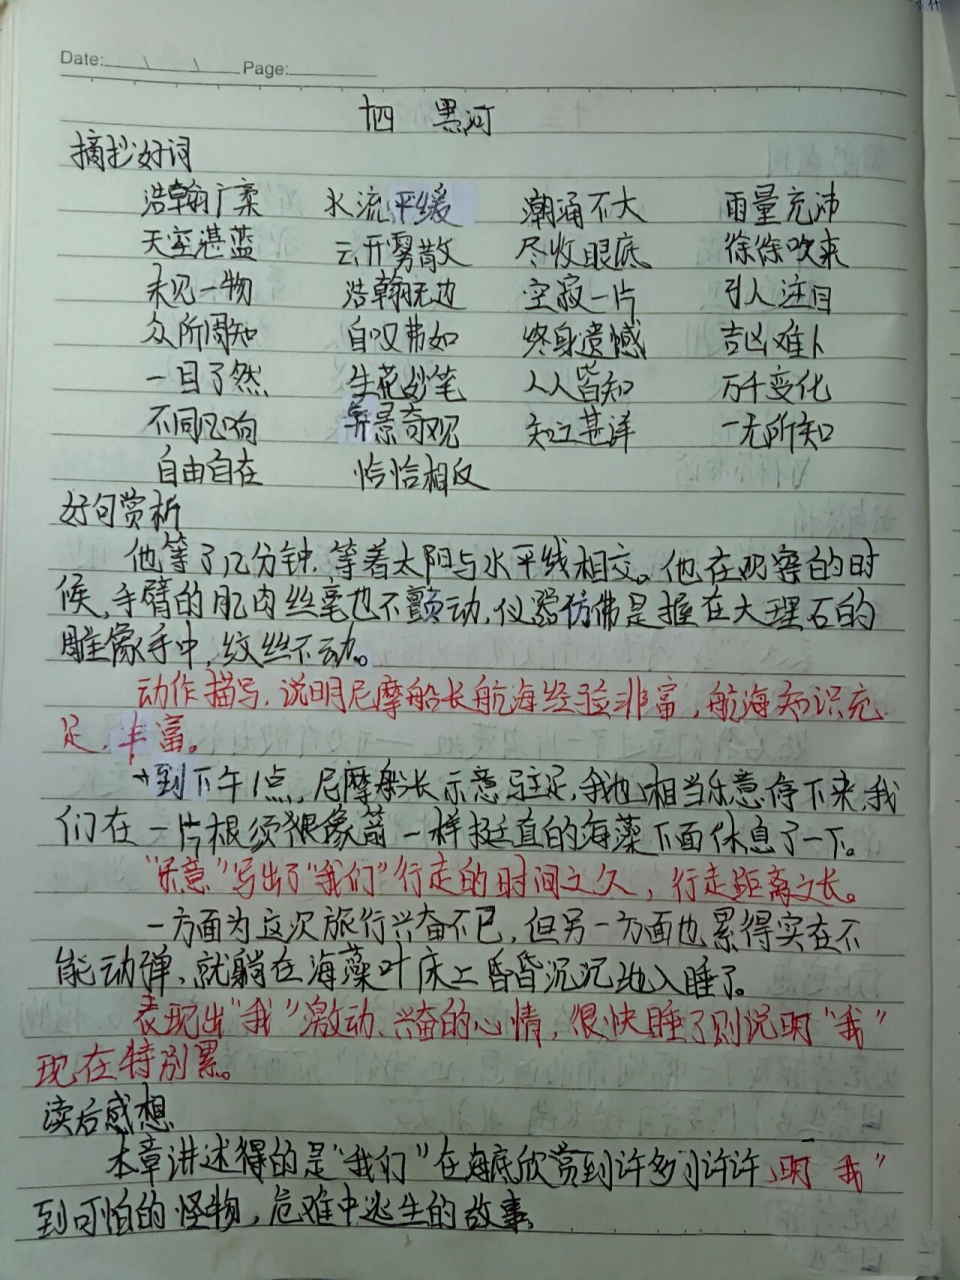 Date: Page:
十四 黑河
摘抄好词
浩翰广柔 水流平缓 潮涌不大 雨量充沛
天空湛蓝 云开雾散 尽收眼底 徐徐吹来
未见一物 浩翰无边 空寂一片 引人注目
众所周知 自叹弗如 终身遗憾 吉凶难卜
一目了然 生花妙笔 人人皆知 万千变化
不同凡响 异景奇观 知之甚详 一无所知
自由自在 恰恰相反
好句赏析
他等了几分钟,等着太阳与水平线相交。他在观察的时
候,手臂的肌肉丝毫也不颤动,仪器仿佛是握在大理石的
雕像手中,纹丝不动。
动作描写,说明尼摩船长航海经验非富,航海知识充
足,丰富。
到下午1点,尼摩船长示意驻足,我也相当乐意停下来,我
们在一片根须很像箭一样挺直的海藻下面休息了一下。
"乐意"写出了"我们"行走的时间之久,行走距离之长。
一方面为这次旅行兴奋不已,但另一方面也累得实在不
能动弹,就躺在海藻叶床上昏昏沉沉地入睡了。
表现出"我"激动、兴奋的心情,很快睡了则说明"我"
现在特别累。
读后感想
本章讲述得的是"我们"在海底欣赏到许多许许,明 我"
到可怕的怪物,危难中逃生的故事